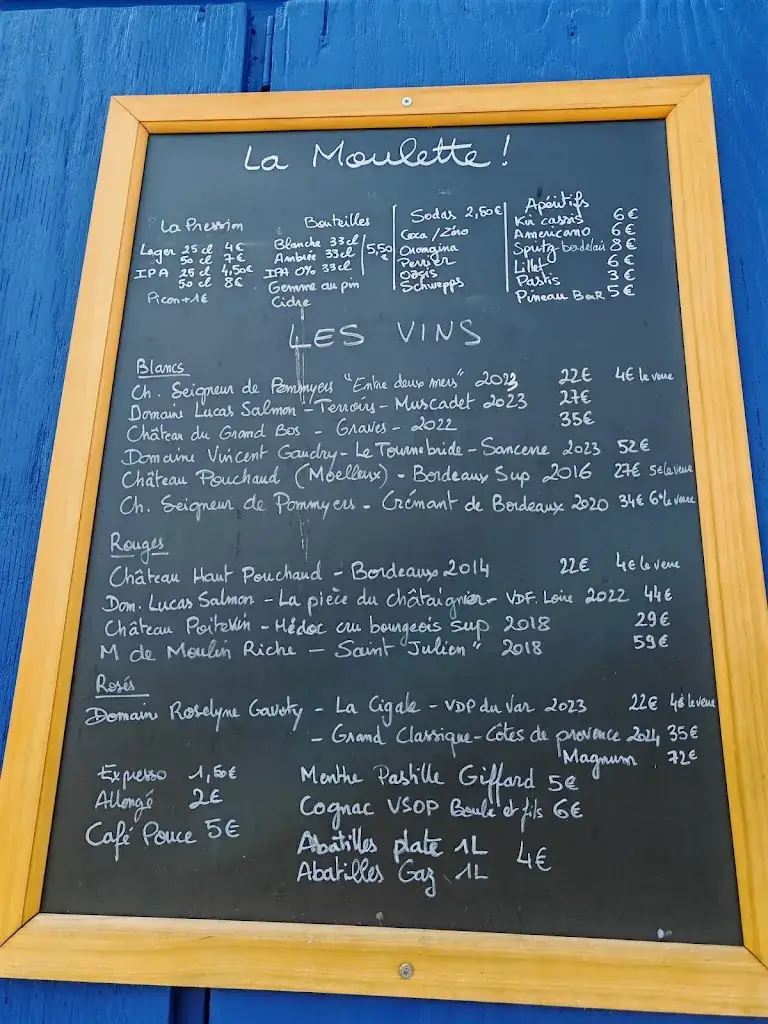 La Moulette !
La Pression
Lager 25 cl 4€
50 cl 7€
IPA 25 cl 4,50€
50 cl 8€
Picon +1€
Bouteilles
Blanche 33cl
Ambrée 33cl
IPA 0% 33cl
5,50€
Gemme au pin
Cidre
Sodas 2,80€
Coca / Zéro
Orangina
Perrier
Oasis
Schwepps
Apéritifs
Kir cassis 6€
Americano 6€
Spritz bordelais 8€
Lillet 6€
Pastis 3€
Pineau 5€
LES VINS
Blancs
Ch. Seigneur de Pommyers "Entre deux mers" 2023 22€ 4€ le verre
Domaine Lucas Salmon - Terroirs - Muscadet 2023 27€
Château du Grand Bos - Graves - 2022 35€
Domaine Vincent Gaudry - Le Tournebride - Sancerre 2023 52€
Château Pouchaud (Moelleux) - Bordeaux Sup 2016 27€ 5€ le verre
Ch. Seigneur de Pommyers - Crémant de Bordeaux 2020 34€ 6€ le verre
Rouges
Château Haut Pouchaud - Bordeaux 2014 22€ 4€ le verre
Dom. Lucas Salmon - La pièce du châtaignier - VDF. Loire 2022 44€
Château Poitevin - Médoc cru bourgeois sup 2018 29€
M de Moulin Riche - Saint Julien " 2018 59€
Rosés
Domaine Roselyne Gavoty - La Cigale - VDP du Var 2023 22€ 4€ le verre
- Grand Classique - Côtes de provence 2024 35€
Magnum 72€
Expresso 1,50€
Allongé 2€
Café Pouce 5€
Menthe Pastille Giffard 5€
Cognac VSOP Boule et fils 6€
Abatilles plate 1L
Abatilles Gaz 1L
4€